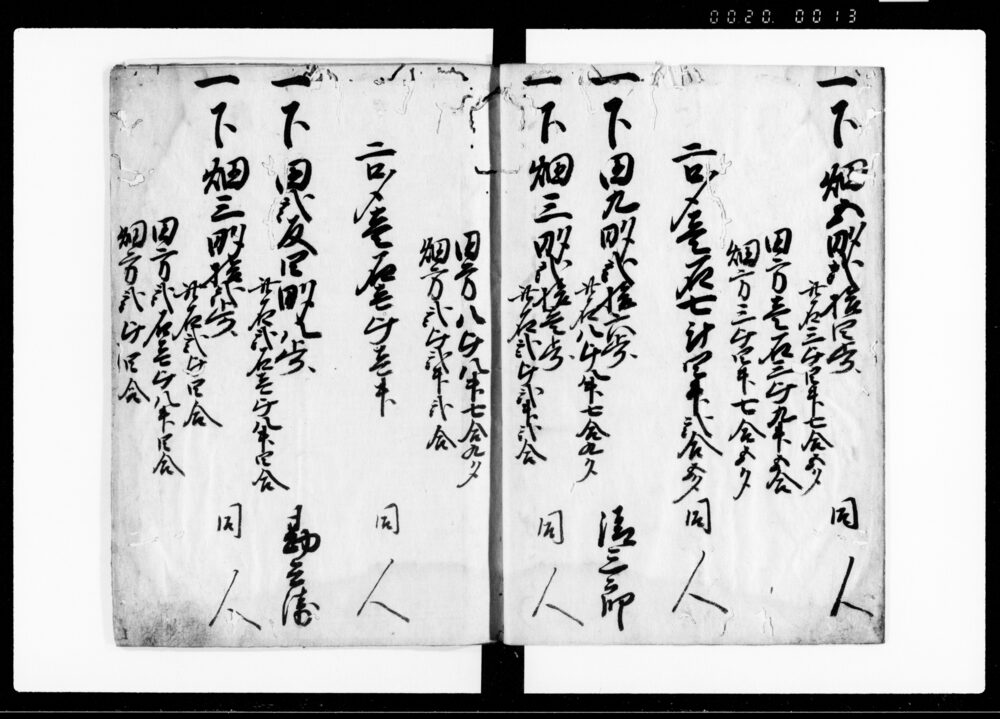 一下畑五畝弐拾四歩
此石三斗四升七合五夕
同人
田方壱石三斗九升五合
畑方三斗四升七合五夕
二口〆壱石七斗四升弐合五夕
同人
一下田九畝弐拾六歩
此石八斗八升七合九夕
清三郎
一下畑三畝弐拾壱歩
此石弐斗弐升弐合
同人
田方八斗八升七合九夕
畑方弐斗弐升弐合
二口〆壱石壱斗壱升
同人
一下田弐反四畝八歩
此石弐石壱斗八升四合
勘兵衛
一下畑三畝拾弐歩
此石弐斗四合
同人
田方弐石壱斗八升四合
畑方弐斗四合
0020.0013